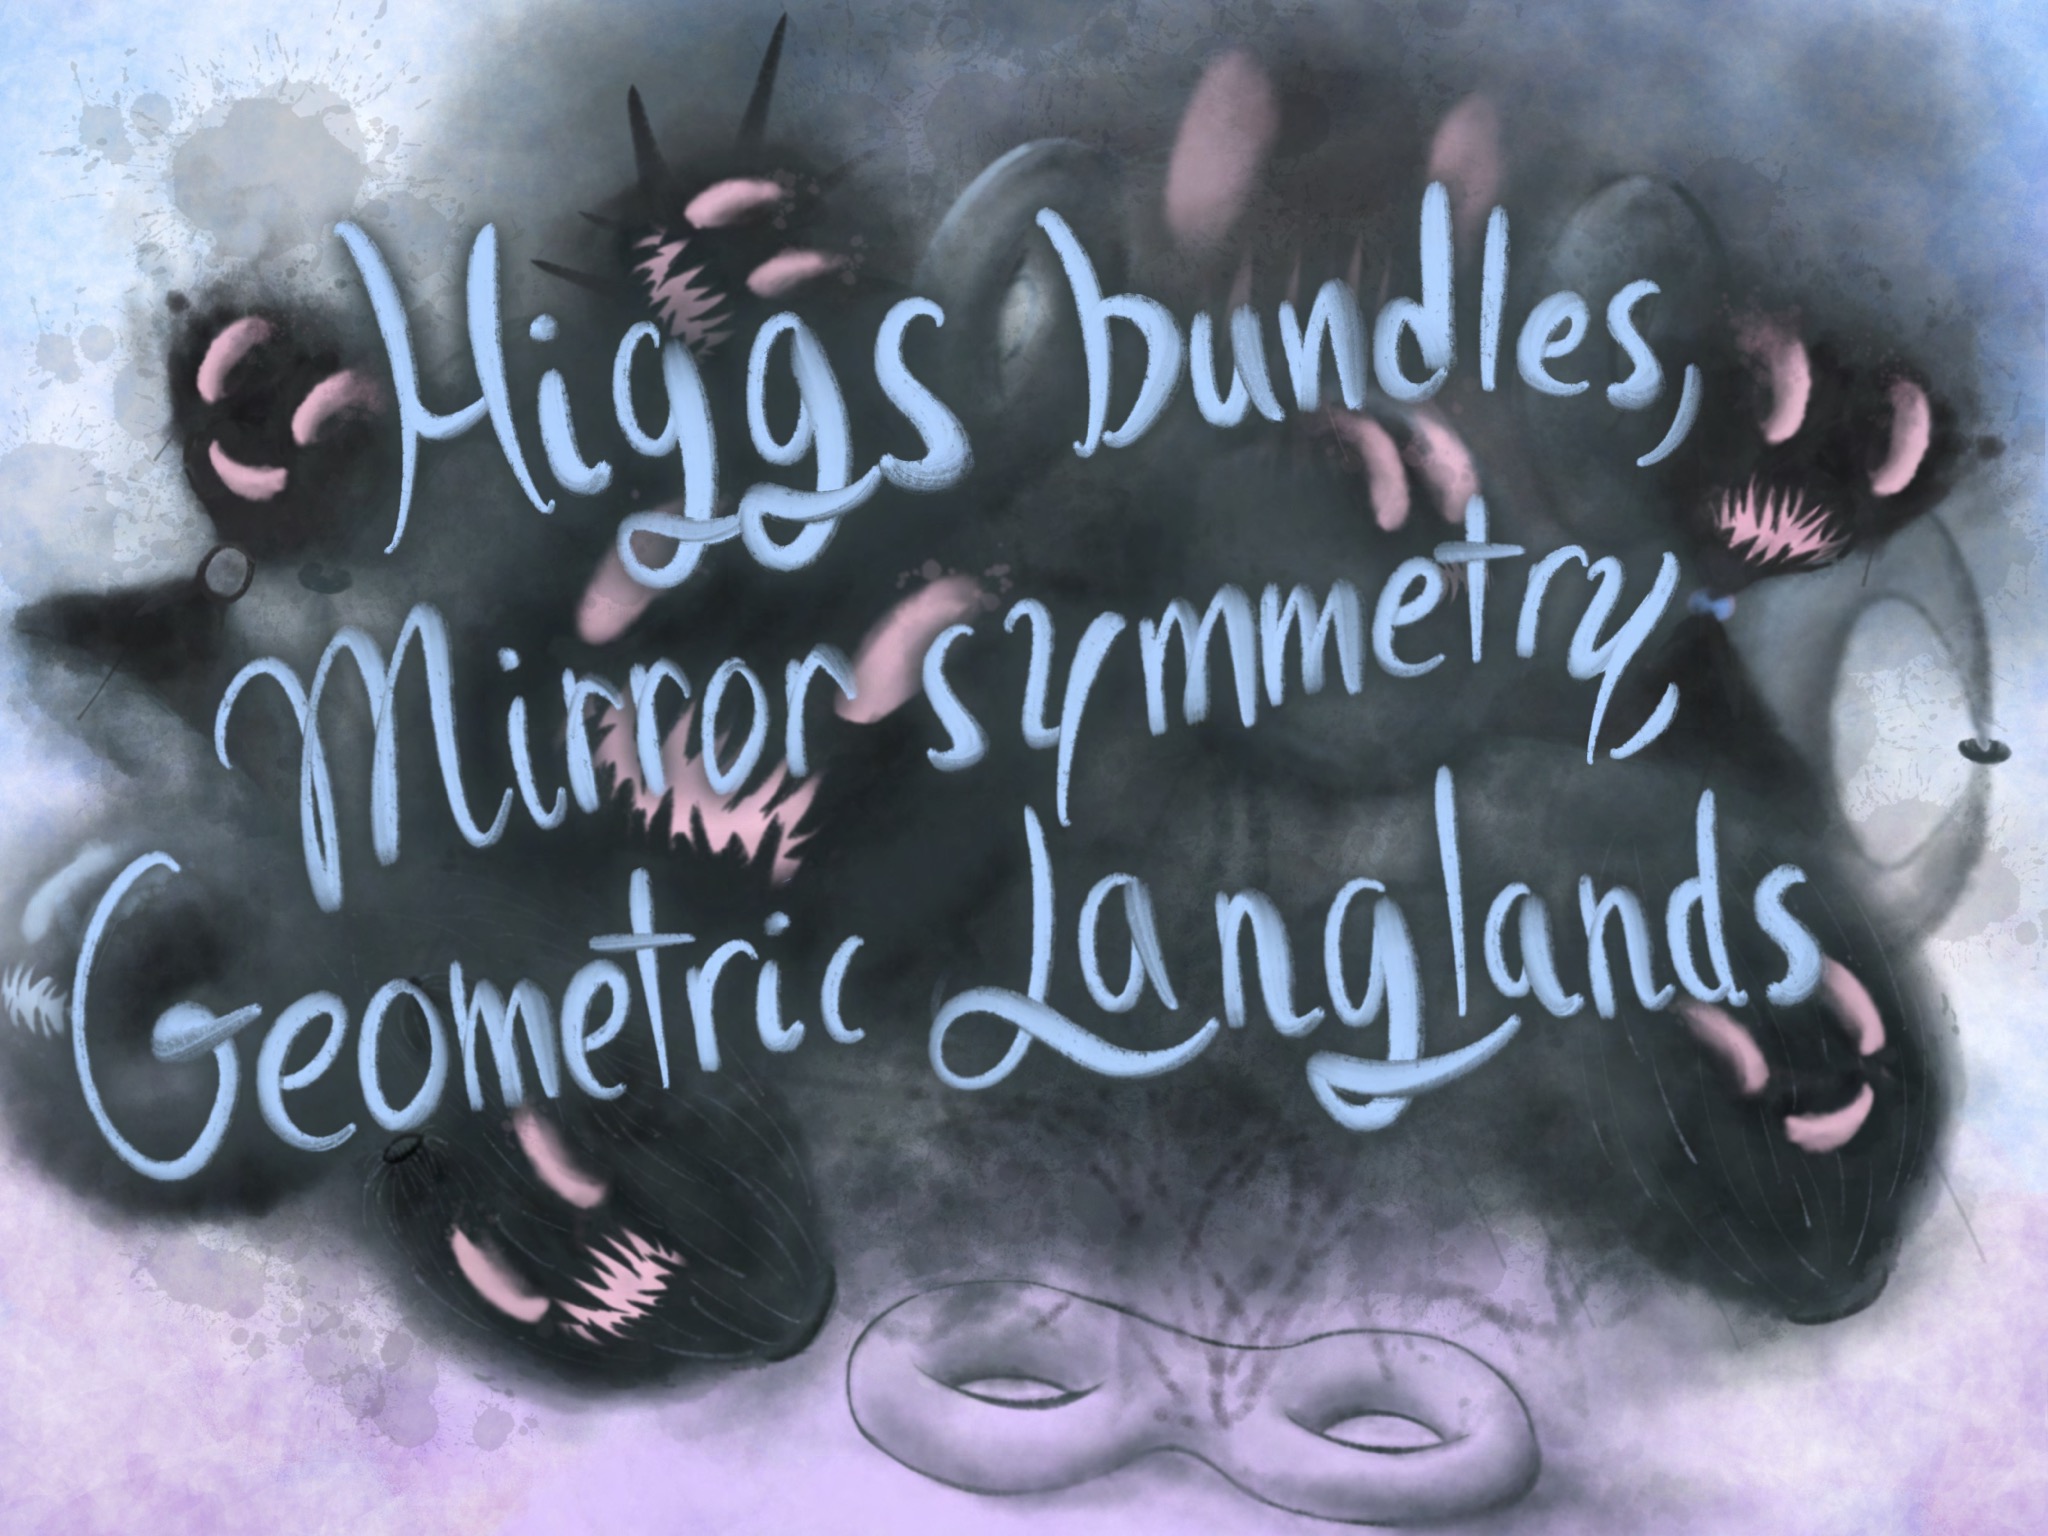 Higgs bundles,
Mirror symmetry,
Geometric Langlands